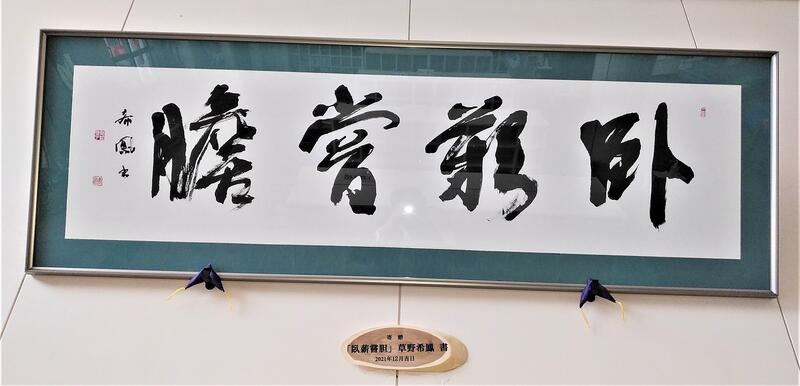 臥薪嘗膽
希鳳書
寄贈
「臥薪嘗胆」草野希鳳 書
2021年12月吉日